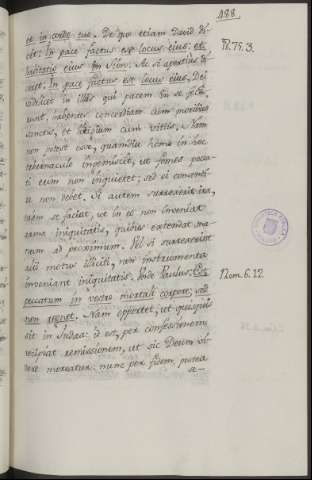 188
et in corde tuo. De quo etiam David di-
cit: In pace factus est locus ejus: et
habitatio ejus in Sion. Ac si apertius di-
cat: In pace factus est locus ejus, Dei
videlicet in illis qui pacem in se feli-
habentes concordiam cum moribus
sanctis, et litigium cum vitiis. Nam
non potest esse, quamdiu homo in hoc
tabernaculo et fomes pecca-
ti eum non inquietet; sed ei consenti-
re non debet. Si autem surrexerit ira,
tale se faciat, ut in eo non inveniat
arma iniquitatis, quibus extendat ma-
num ad proximum. Vel si surrexerint
alii motus illiciti, non instrumenta
inveniant iniquitatis. Unde Paulus:
peccatum in vestro mortali corpore; sed
non regnet. Nam oportet, ut quisquis
sit in Judea: id est, per confessionem
recipiat remissionem, et sic Deum vi-
dere mereatur: nunc per fidem, postea
Ps. 75. 3.
Rom. 6. 12.